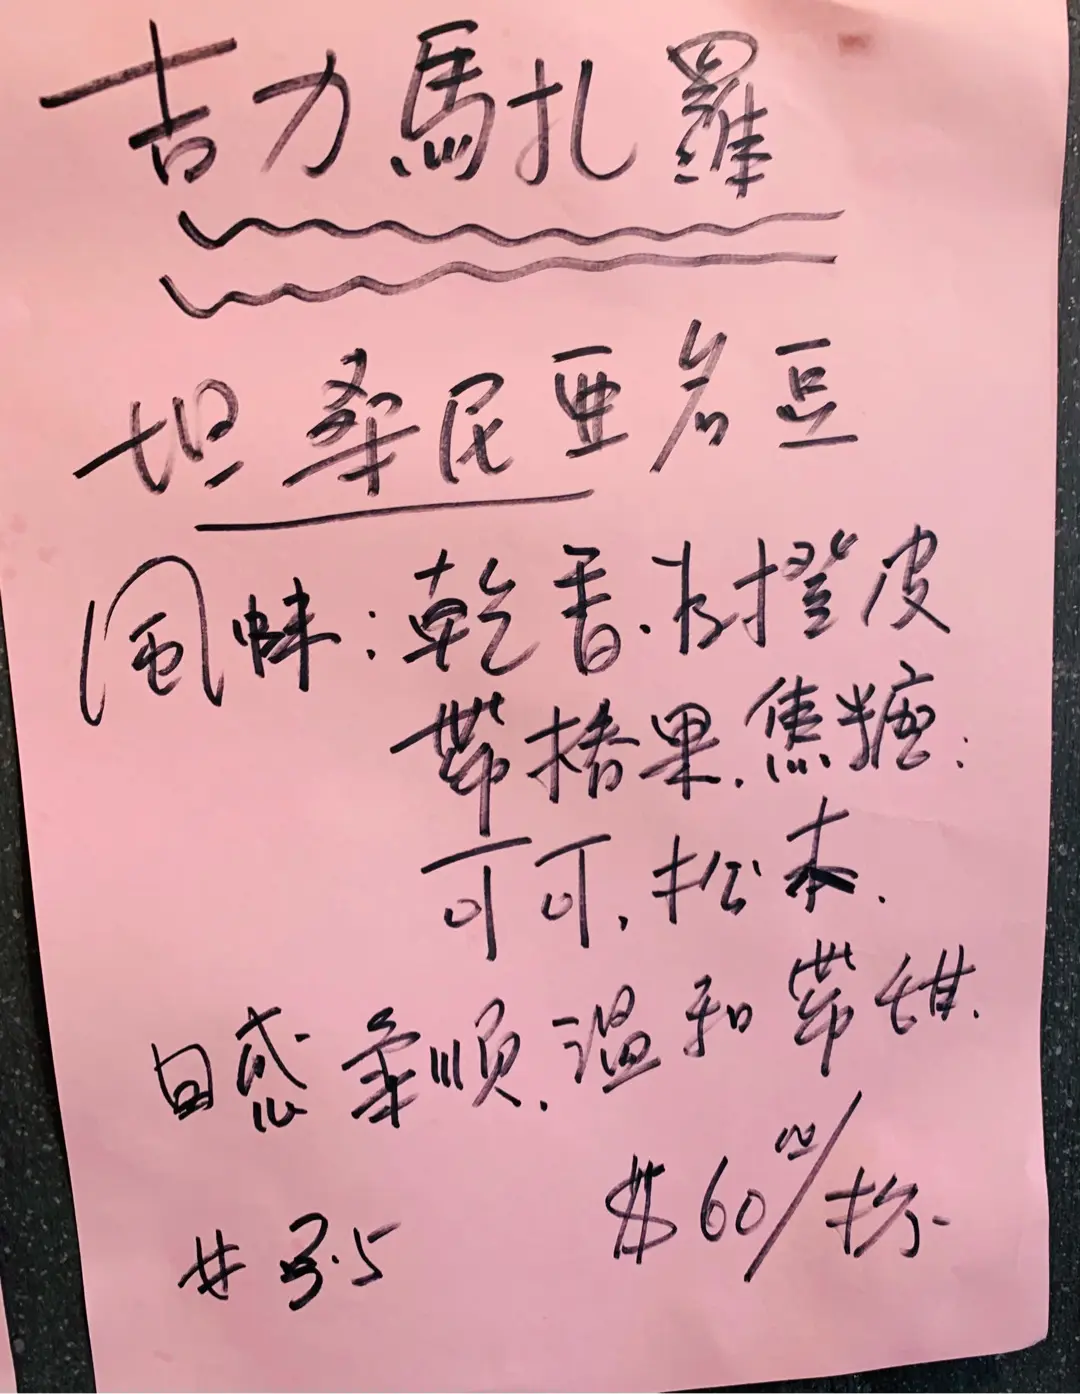 吉力馬扎羅
坦桑尼亞名豆
風味:乾香.有橙皮
帶榛果.焦糖.
可可.松木.
口感柔順.溫和帶甜.
#3.5 $60.00/